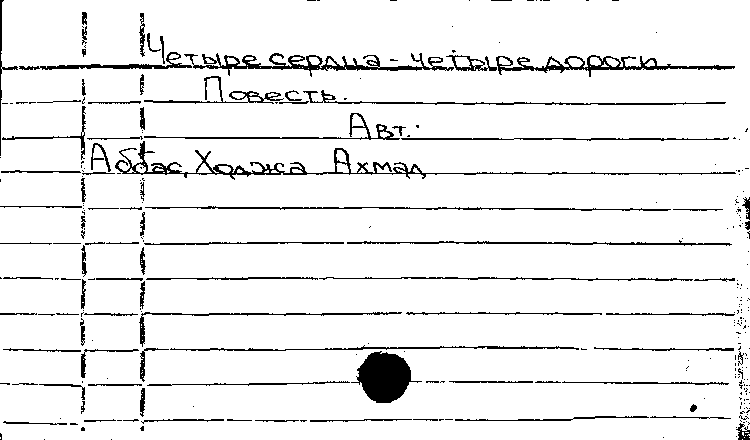 Четыре сердца - четыре дороги.
Повесть.
Авт.:
Аббас, Ходжа Ахмад